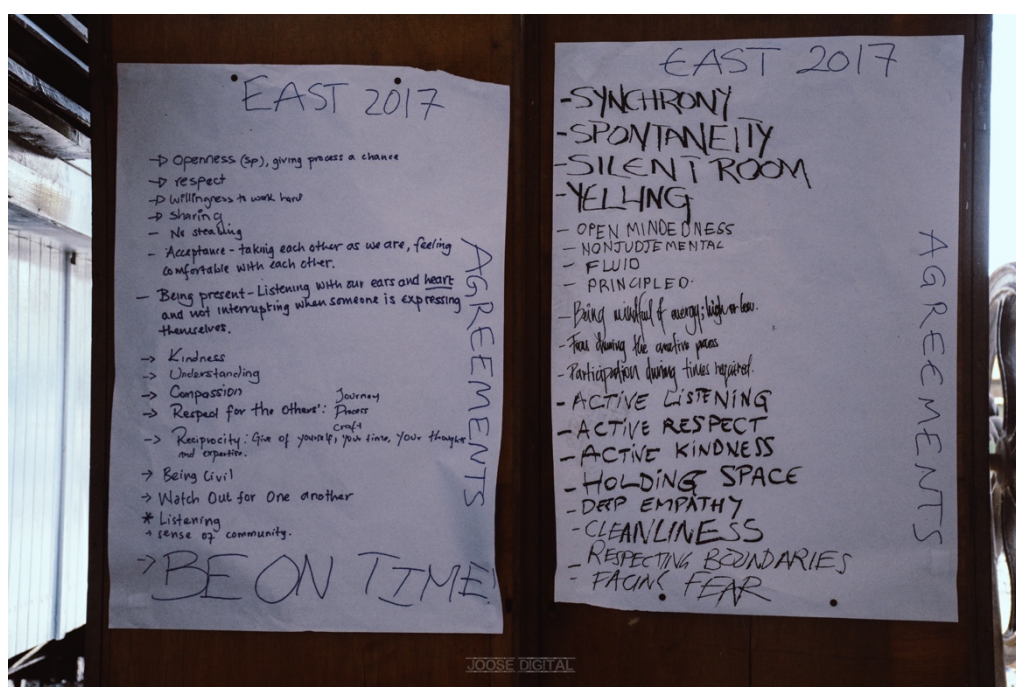 EAST 2017
→ Openness (sp), giving process a chance
→ respect
→ willingness to work hard
→ sharing
- No stealing
- Acceptance - taking each other as we are, feeling
comfortable with each other.
- Being present - Listening with our ears and heart
and not interrupting when someone is expressing
themselves.
→ Kindness
→ Understanding
→ Compassion
→ Respect for the Others': Journey
Process
craft
→ Reciprocity: Give of yourself, your time, your thoughts
and expertise.
→ Being Civil
→ Watch Out for One another
* Listening
+ sense of community.
→ BE ON TIME!
AGREEMENTS
EAST 2017
- SYNCHRONY
- SPONTANEITY
- SILENT ROOM
- YELLING
- OPEN MINDEDNESS
- NONJUDJEMENTAL
- FLUID
- PRINCIPLED.
- Being mindful of energy; high or low.
- during the creative process
- Participation during times required.
- ACTIVE LISTENING
- ACTIVE RESPECT
- ACTIVE KINDNESS
- HOLDING SPACE
- DEEP EMPATHY
- CLEANLINESS
- RESPECTING BOUNDARIES
- FACING FEAR
AGREEMENTS
JOOSE DIGITAL